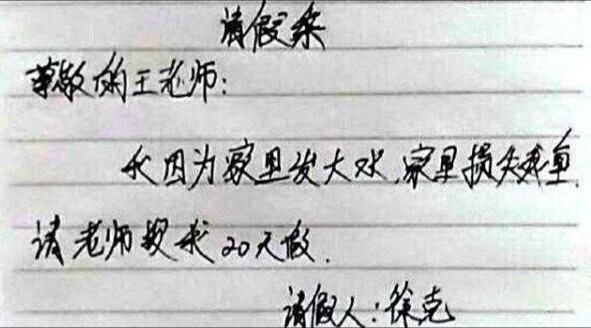 请假条
尊敬的王老师:
我因为家里发大水,家里损失严重,
请老师要求20天假.
请假人:徐克